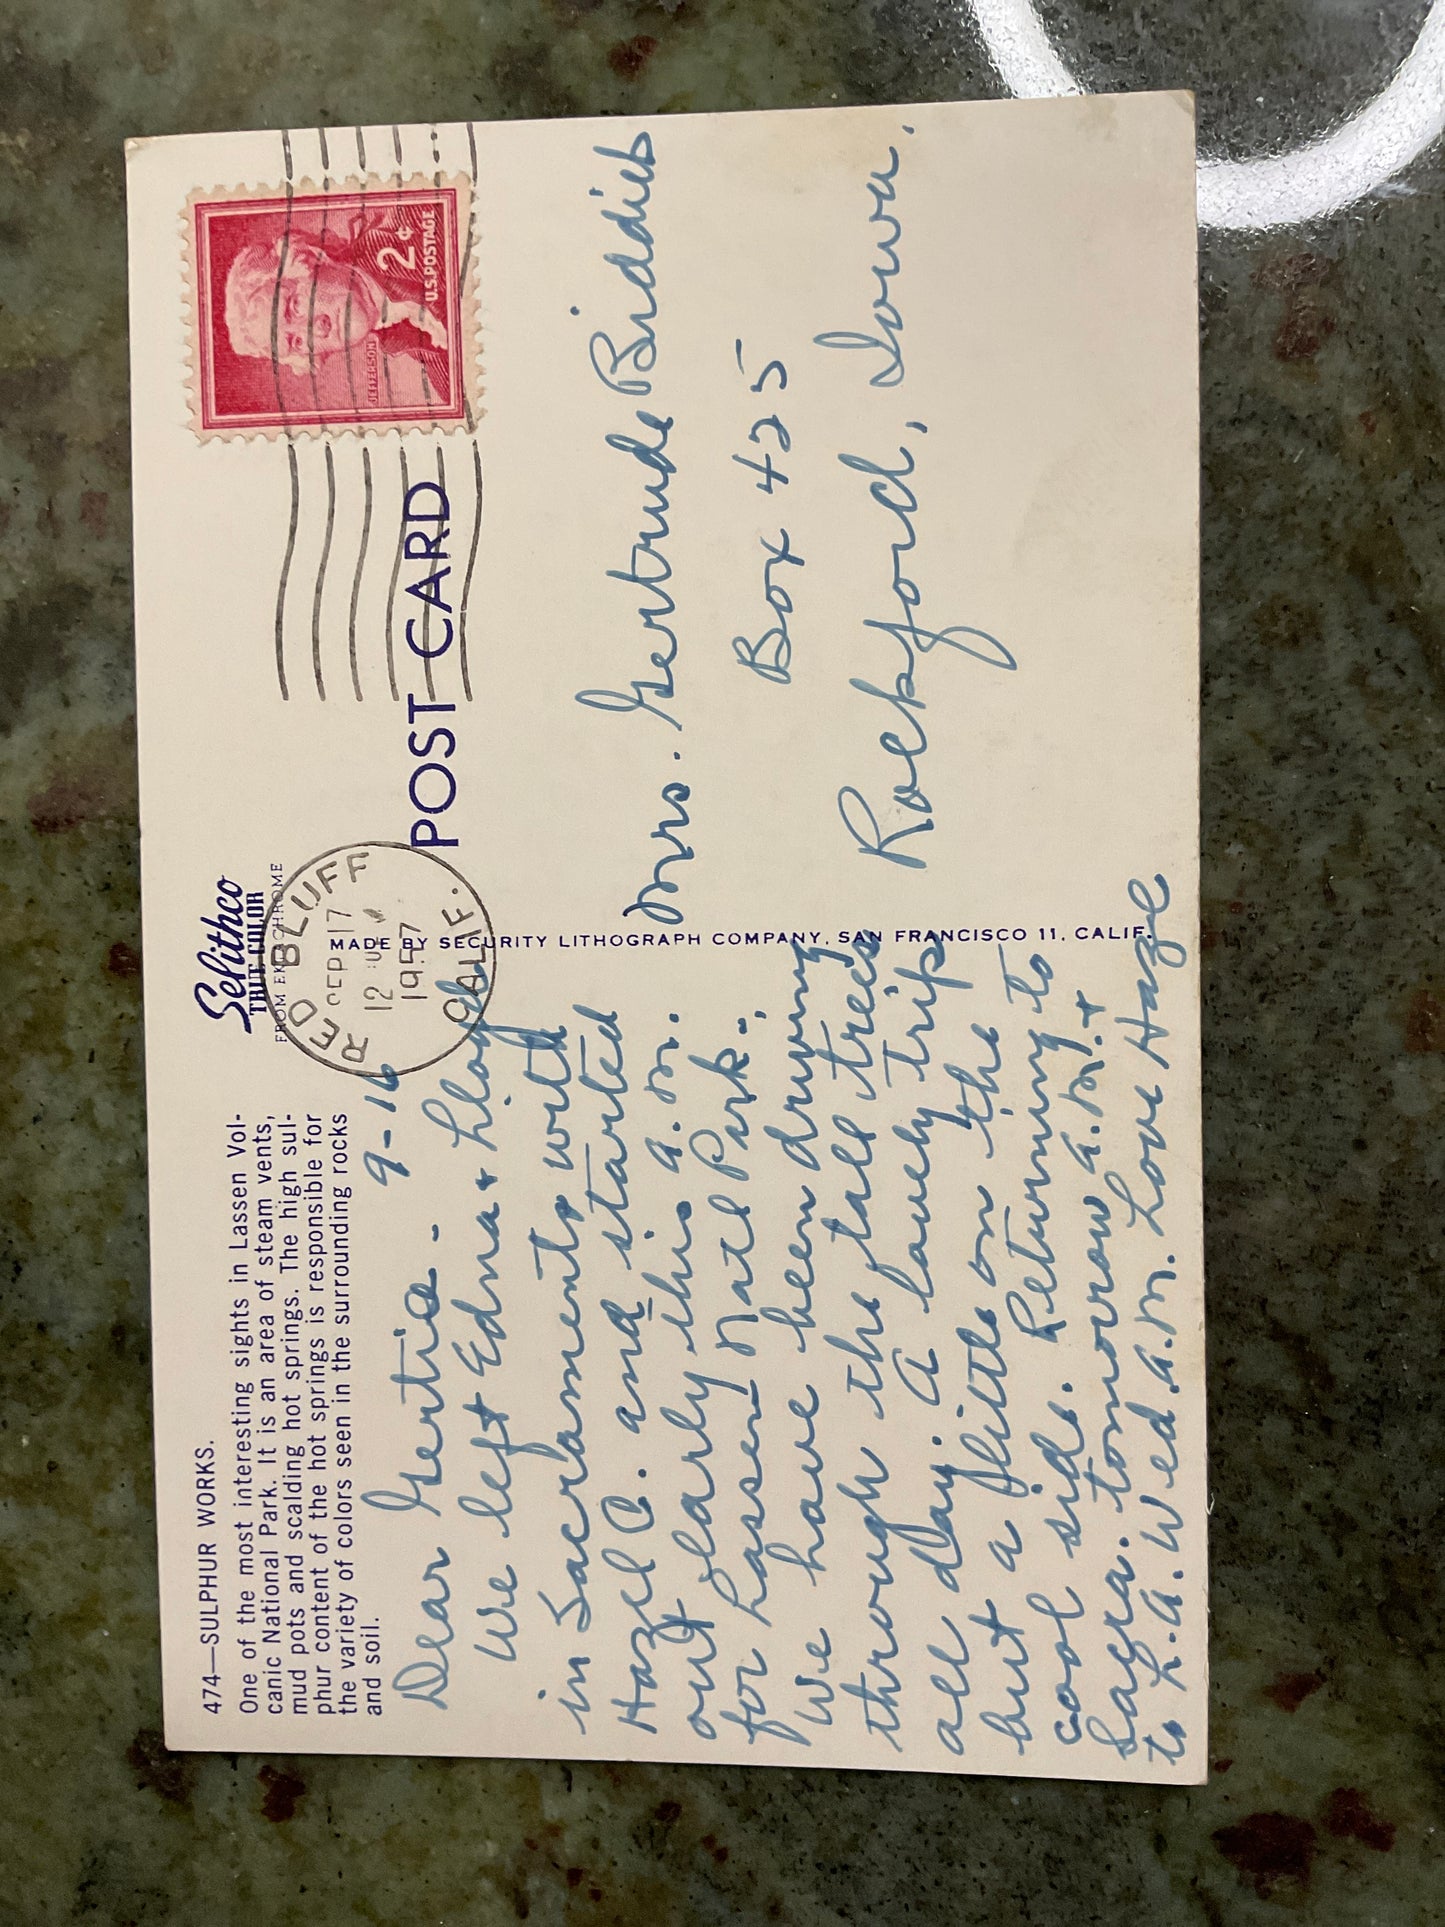 474—SULPHUR WORKS.
One of the most interesting sights in Lassen Vol-
canic National Park. It is an area of steam vents,
mud pots and scalding hot springs. The high sul-
phur content of the hot springs is responsible for
the variety of colors seen in the surrounding rocks
and soil.
9-16
Dear Gertie -
We left Edna + Lloyd
in Sacramento with
Hazel C. and started
out early this a.m.
for Lassen Natl Park.
We have been driving
through the tall trees
all day. A lovely trip
but a little on the
cool side. Returning to
Sacra. tomorrow a.m. +
to L.A. Wed. a.m. Love Haze
Selithco
TRUE COLOR
FROM EKTACHROME
MADE BY SECURITY LITHOGRAPH COMPANY, SAN FRANCISCO 11, CALIF.
RED BLUFF
SEP 17
12
1957
CALIF.
POST CARD
JEFFERSON
2¢
U.S. POSTAGE
Mrs. Gertrude Biddick
Box 425
Rockford, Iowa.